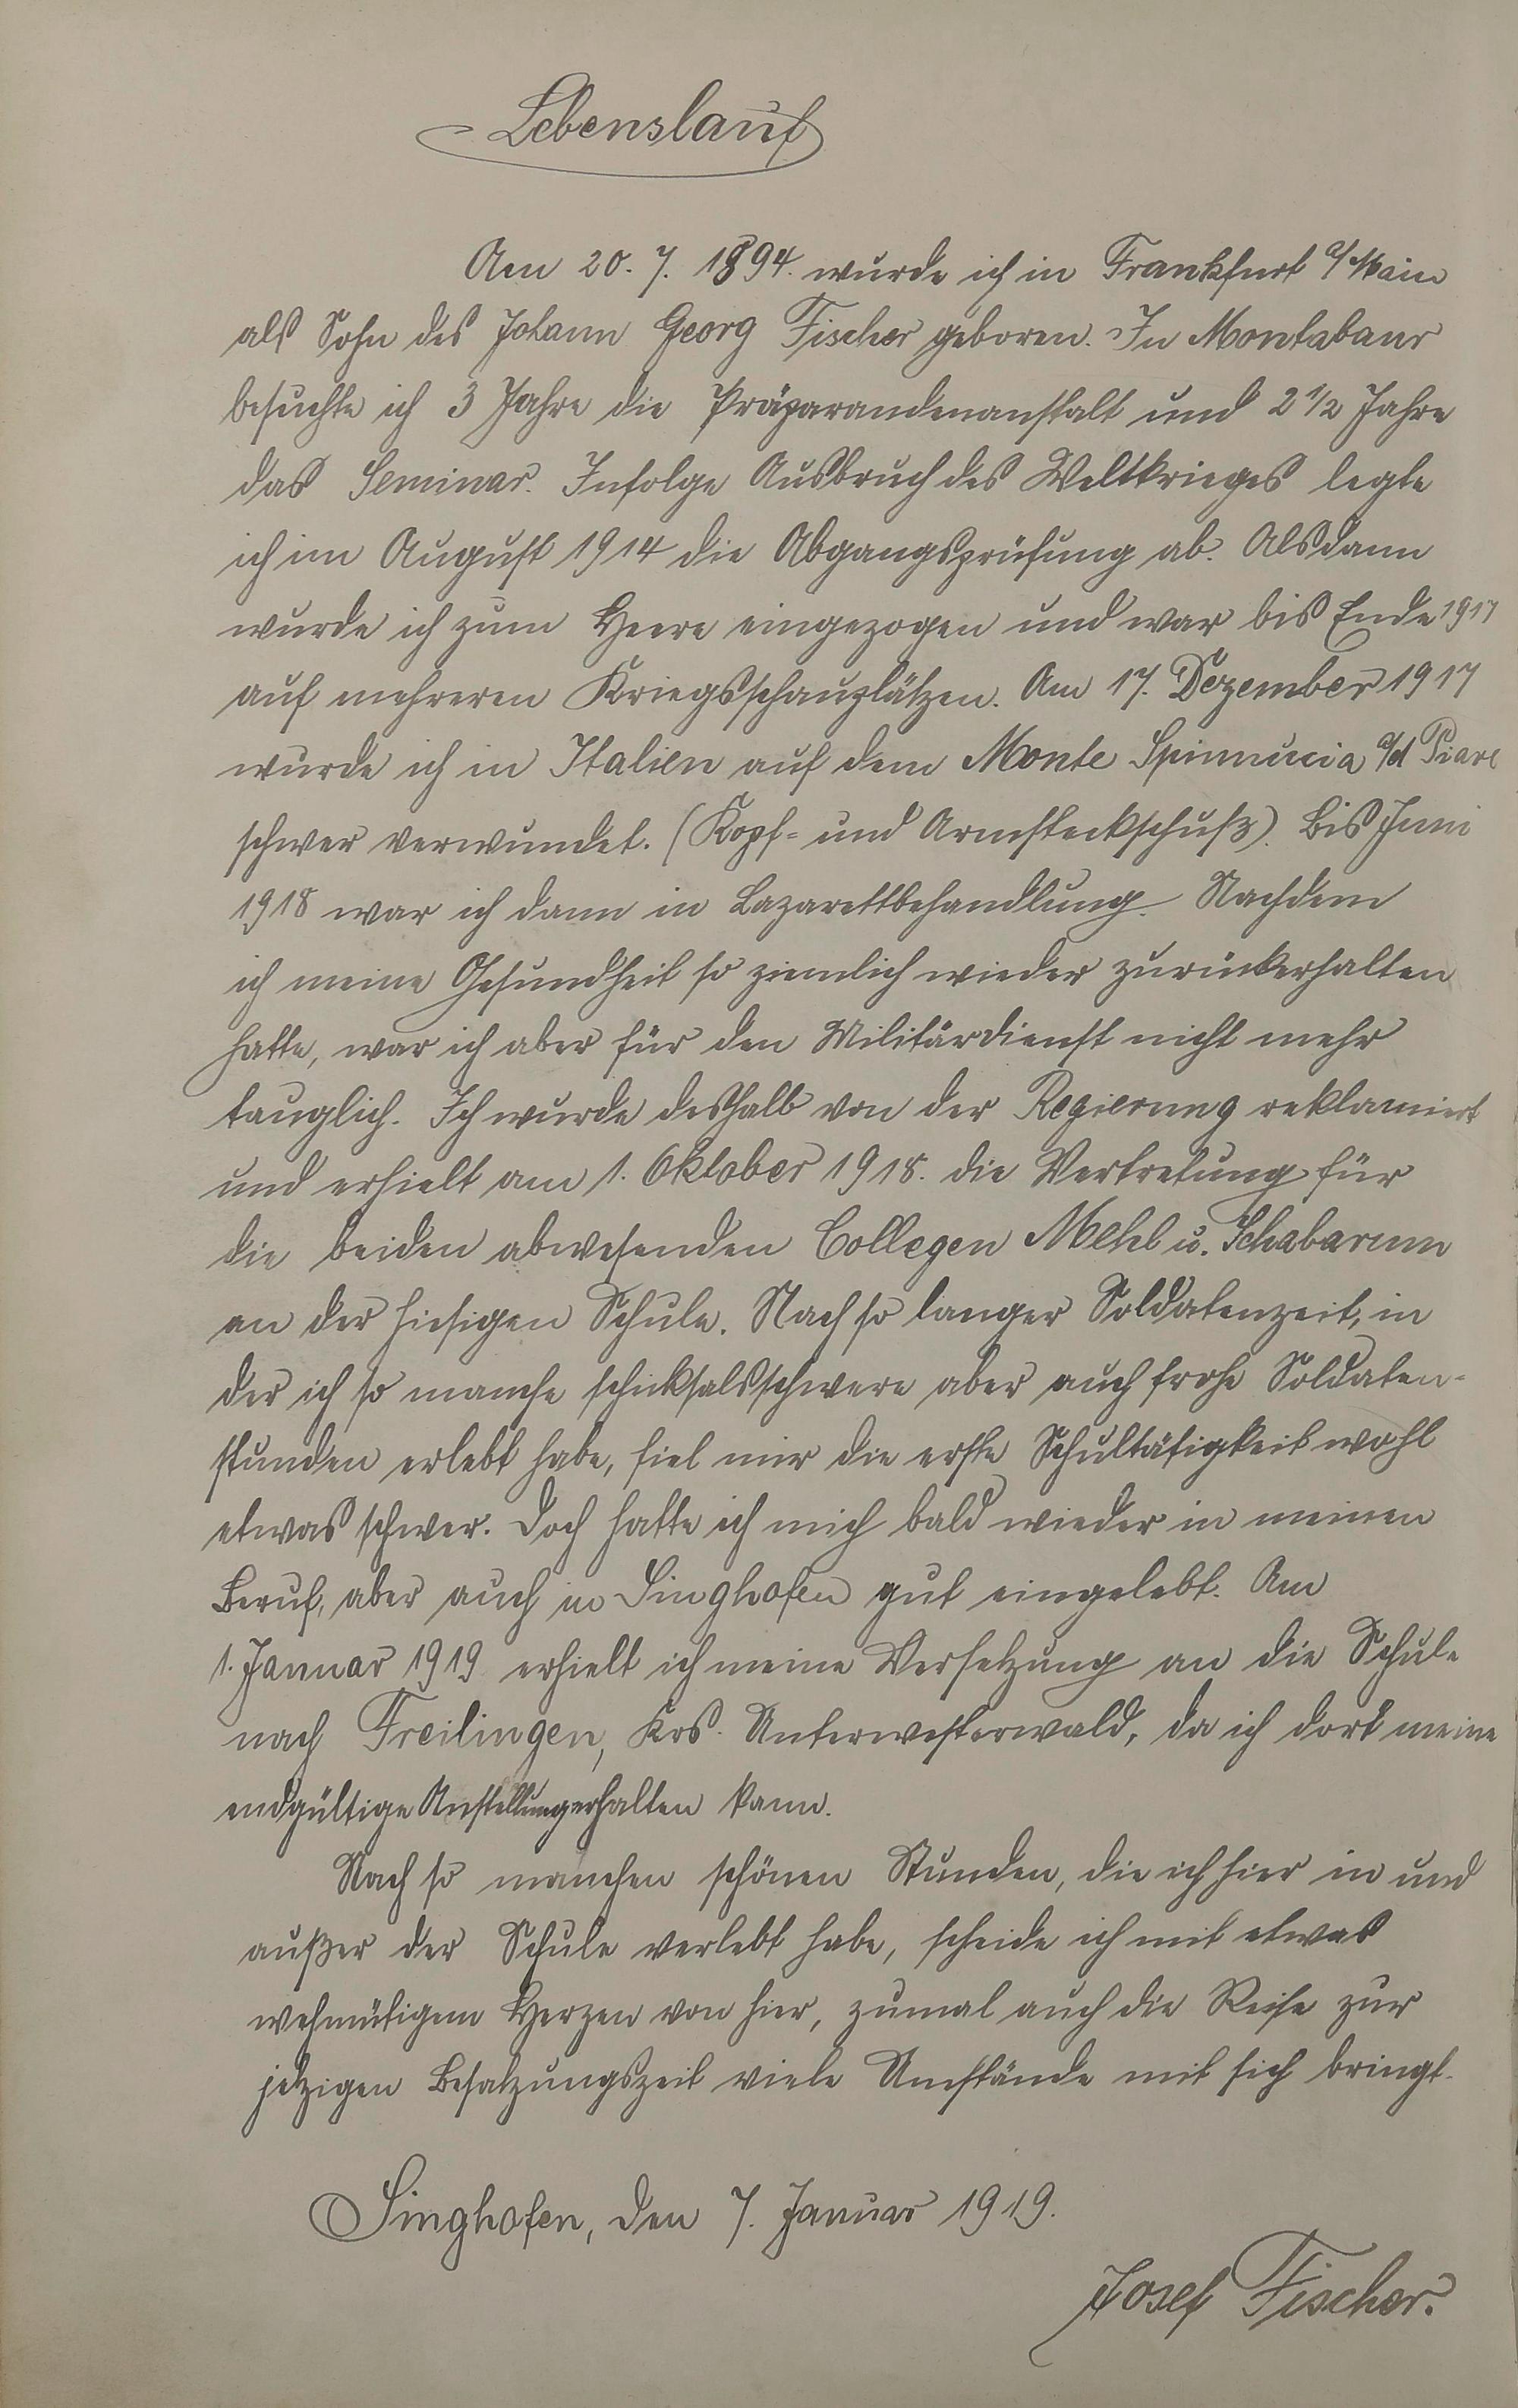 Lebenslauf
Am 20. 7. 1894. wurde ich in Frankfurt a/Main
als Sohn des Johann Georg Fischer geboren. In Montabaur
besuchte ich 3 Jahre die Präparandenanstalt und 2 1/2 Jahre
das Seminar. Infolge Ausbruch des Weltkrieges legte
ich im August 1914 die Abgangsprüfung ab. Alsdann
wurde ich zum Heere eingezogen und war bis Ende 1917
auf mehreren Kriegsschauplätzen. Am 17. Dezember 1917
wurde ich in Italien auf dem Monte Spinnuccia a/d Piave
schwer verwundet. (Kopf- und Armsteckschuß). Bis Juni
1918 war ich dann in Lazarettbehandlung. Nachdem
ich meine Gesundheit so ziemlich wieder zurückerhalten
hatte, war ich aber für den Militärdienst nicht mehr
tauglich. Ich wurde deshalb von der Regierung reklamiert
und erhielt am 1. Oktober 1918. die Vertretung für
die beiden abwesenden Collegen Mehl u. Schabarum
an der hiesigen Schule. Nach so langer Soldatenzeit, in
der ich so manche schicksalsschwere aber auch frohe Soldaten-
stunden erlebt habe, fiel mir die erste Schultätigkeit wohl
etwas schwer. Doch hatte ich mich bald wieder in meinen
Beruf, aber auch in Singhofen gut eingelebt. Am
1. Januar 1919 erhielt ich meine Versetzung an die Schule
nach Freilingen, Krs. Unterwesterwald, da ich dort meine
endgültige Anstellung erhalten kann.
Nach so manchen schönen Stunden, die ich hier in und
außer der Schule verlebt habe, scheide ich mit etwas
wehmütigem Herzen von hier, zumal auch die Reise zur
jetzigen Besatzungszeit viele Umstände mit sich bringt.
Singhofen, den 7. Januar 1919.
Josef Fischer.